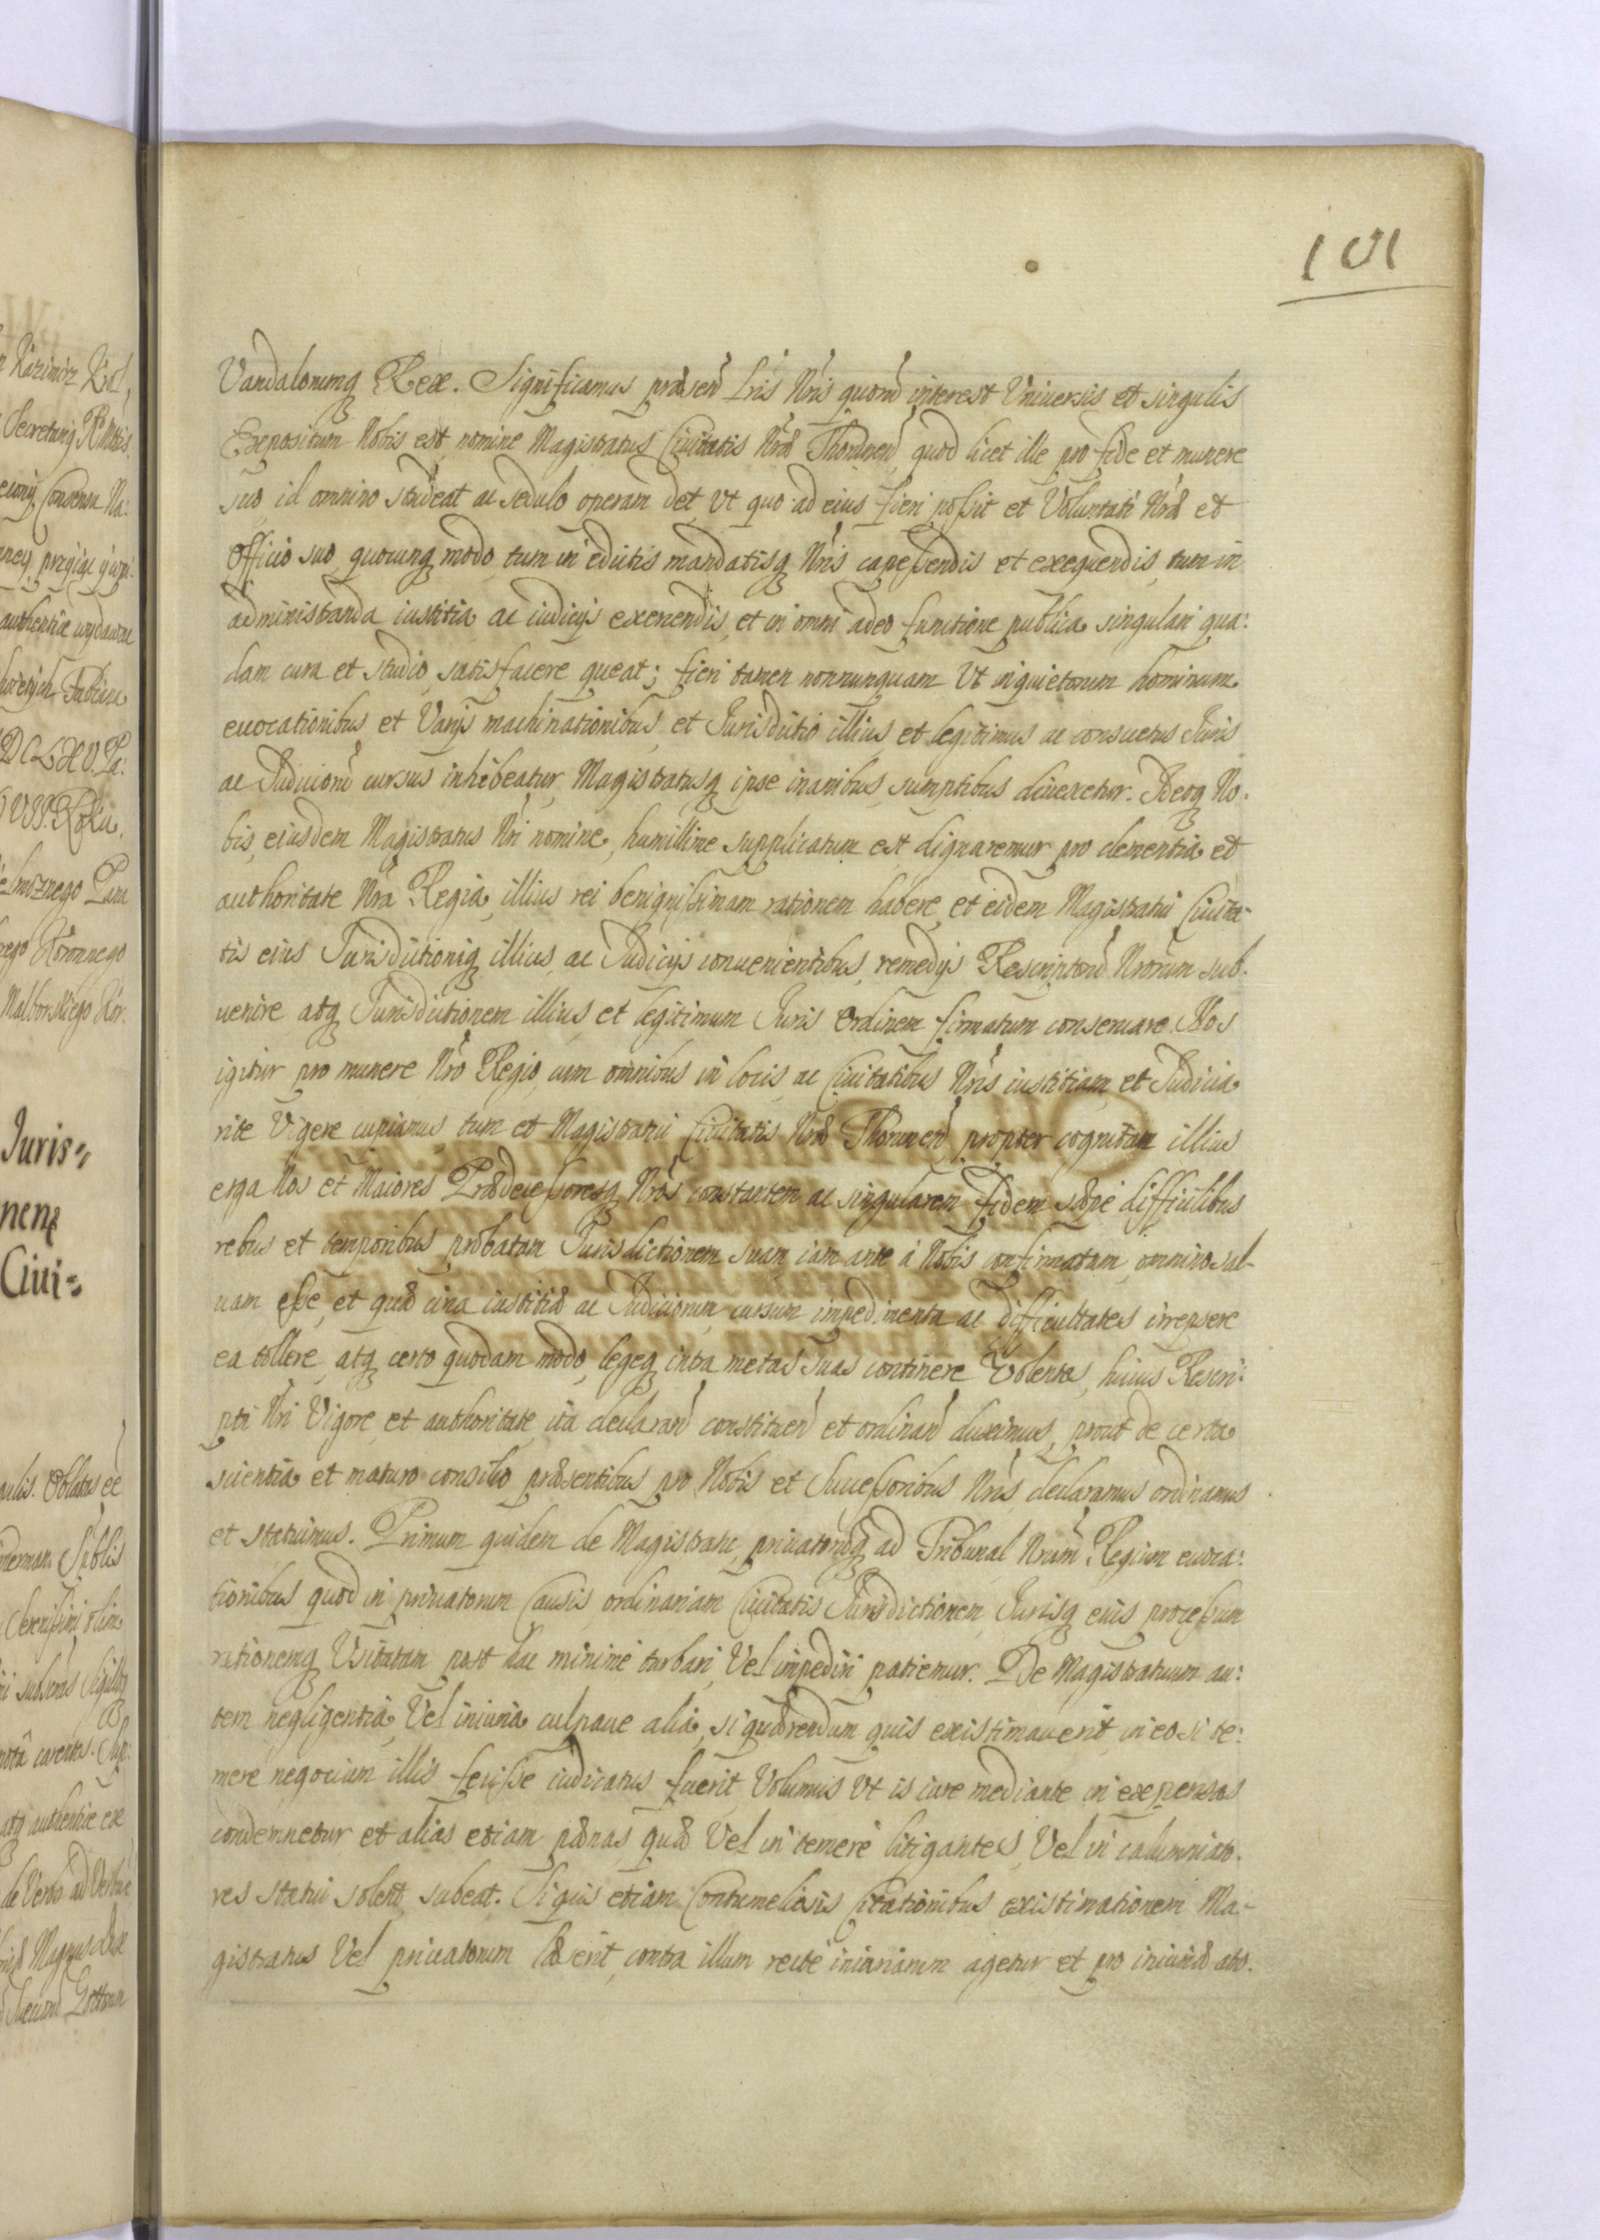 101
Vandalorumq Rex. Significamus præsen Lris Nris quoru interest Vniuersis et singulis
Expositum Nobis est, nomine Magistratus Ciuitatis Nræ Thorunen, quod licet ille pro fide et munere
suo, id omnino studeat ac sedulo operam det, vt quo ad eius fieri possit et Voluntati Nræ et
officio suo, quocunq modo, tum in edictis mandatisq Nris capessendis et exequendis, tum in
administranda iustitia ac iudicijs exercendis, et in omni adeo functione publica singulari qua:
dam cura et studio, satisfacere queat; fieri tamen nonnunquam Vt inquietorum hominum
euocationibus et Varijs machinationibus, et Jurisdictio illius, et legitimus ac consuetus Juris
ac Judicioru cursus inhibeatur, Magistratusq ipse inanibus sumptibus diuexetur. Ideoq No:
bis, eiusdem Magistratus Nri nomine, humillime supplicatum est dignaremur pro clementia et
authoritate Nra Regia, illius rei benignissimam rationem habere, et eidem Magistratui Ciuita-
tis eius Jurisdictioniq illius, ac Judicijs conuenientibus, remedijs Rescriptoru Nrorum sub-
uenire atq Jurisdictionem illius, et legitimum Juris ordinem firmatum conseruare. Nos
igitur pro munere Nro Regio, cum omnibus in locis ac Ciuitatibus Nris iustitiam et Judicia
rite Vigere cupiamus tum et Magistratui Ciuitatis Nræ Thorunen, propter cognitam illius
erga Nos et Maiores Prædecessoresq Nros constantem ac singularem fidem sæpe difficilibus
rebus et temporibus, probatam Jurisdictionem suam iam ante à Nobis confirmatam, omnino sal-
uam esse, et quæ circa iustitiæ ac Judiciorum cursum impedimenta ac difficultates irrepsere
ea tollere, atq certo quodam modo, legeq intra metas suas continere Volentes, huius Rescri:
pti Nri Vigore, et authoritate, ita declarand constituend et ordinand duximus, prout de certa
scientia et maturo consilio præsentibus pro Nobis et Successoribus Nris declaramus ordinamus
et statuimus. Primum quidem de Magistratu, priuatoruq ad Tribunal Nrum Regium euoca:
tionibus quod in priuatorum Causis, ordinariam Ciuitatis Jurisdictionem, Jurisq eius processum
rationemq Vsitatam post hac minime turbari, Vel impediri patiemur. De Magistratuum au:
tem negligentia, Vel iniuria culpaue alia, si quærendum quis existimauerit, in eo si te:
mere negocium illis fecisse iudicatus fuerit, Volumus Vt is iure mediante in expensas
condemnetur et alias etiam pænas, quæ Vel in temere litigantes, Vel in calumniato-
res statui solent, subeat. Siquis etiam Contumeliosis Citationibus existimationem Ma-
gistratus Vel priuatorum læserit, contra illum recte iniuriarum agetur et pro iniuriæ atro-
Juris=
Ciui=